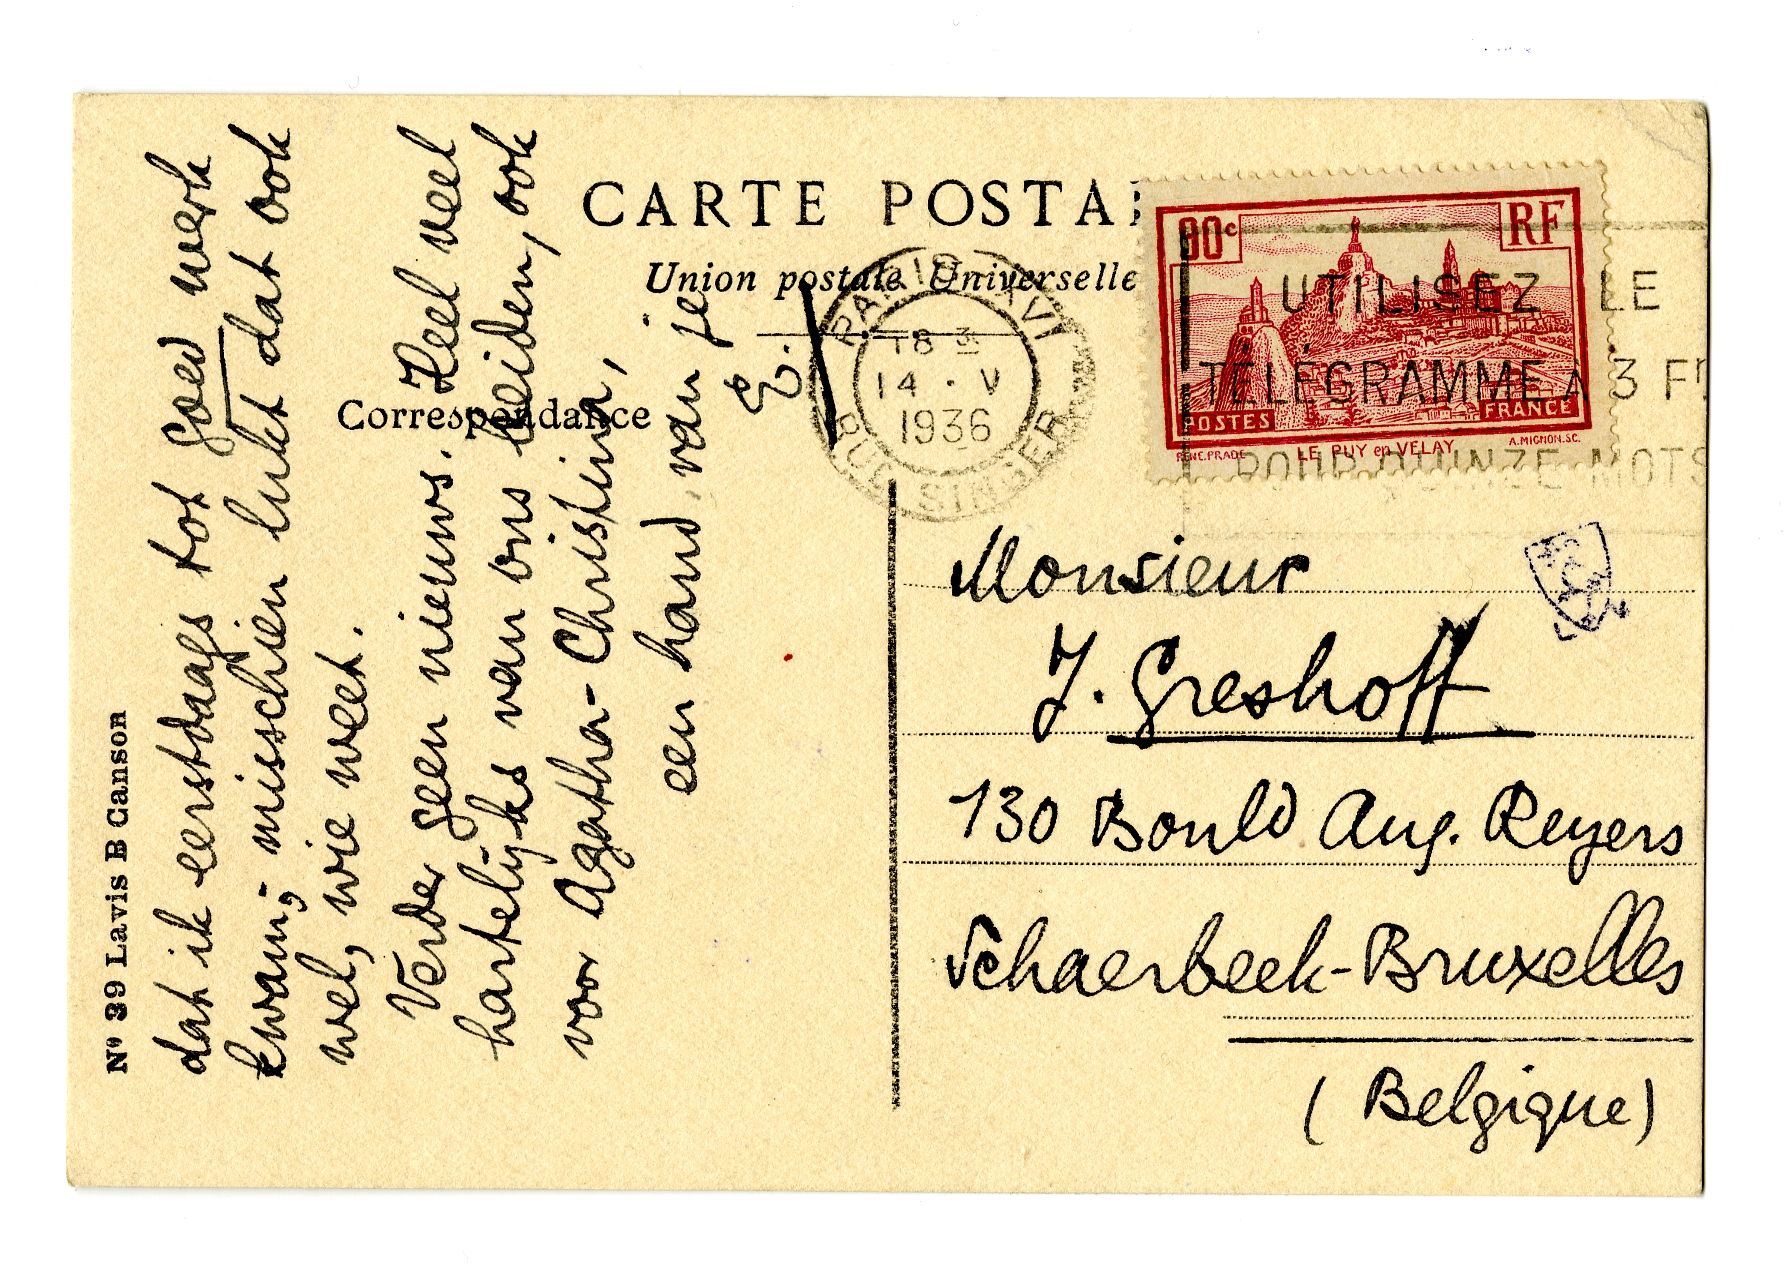 CARTE POSTA
Union postale Universelle
Correspondance
Nº 39 Lavis B Canson
dat ik eerstdaags tot goed werk
kwam; misschien lukt dat ook
wel, wie weet.
Verder geen nieuws. Heel veel
hartelijks van ons beiden, ook
voor Agatha-Christina,
een hand van je
E.
PARIS XVI
18 3
14 · V
1936
RUE SINGER
90c
RF
POSTES
FRANCE
RENE.PRADE
LE PUY en VELAY
A.MIGNON.SC.
UTILISEZ LE
TÉLÉGRAMME A 3 Fr
POUR QUINZE MOTS
Monsieur
J. Greshoff
130 Bould Aug. Reyers
Schaerbeek-Bruxelles
(Belgique)